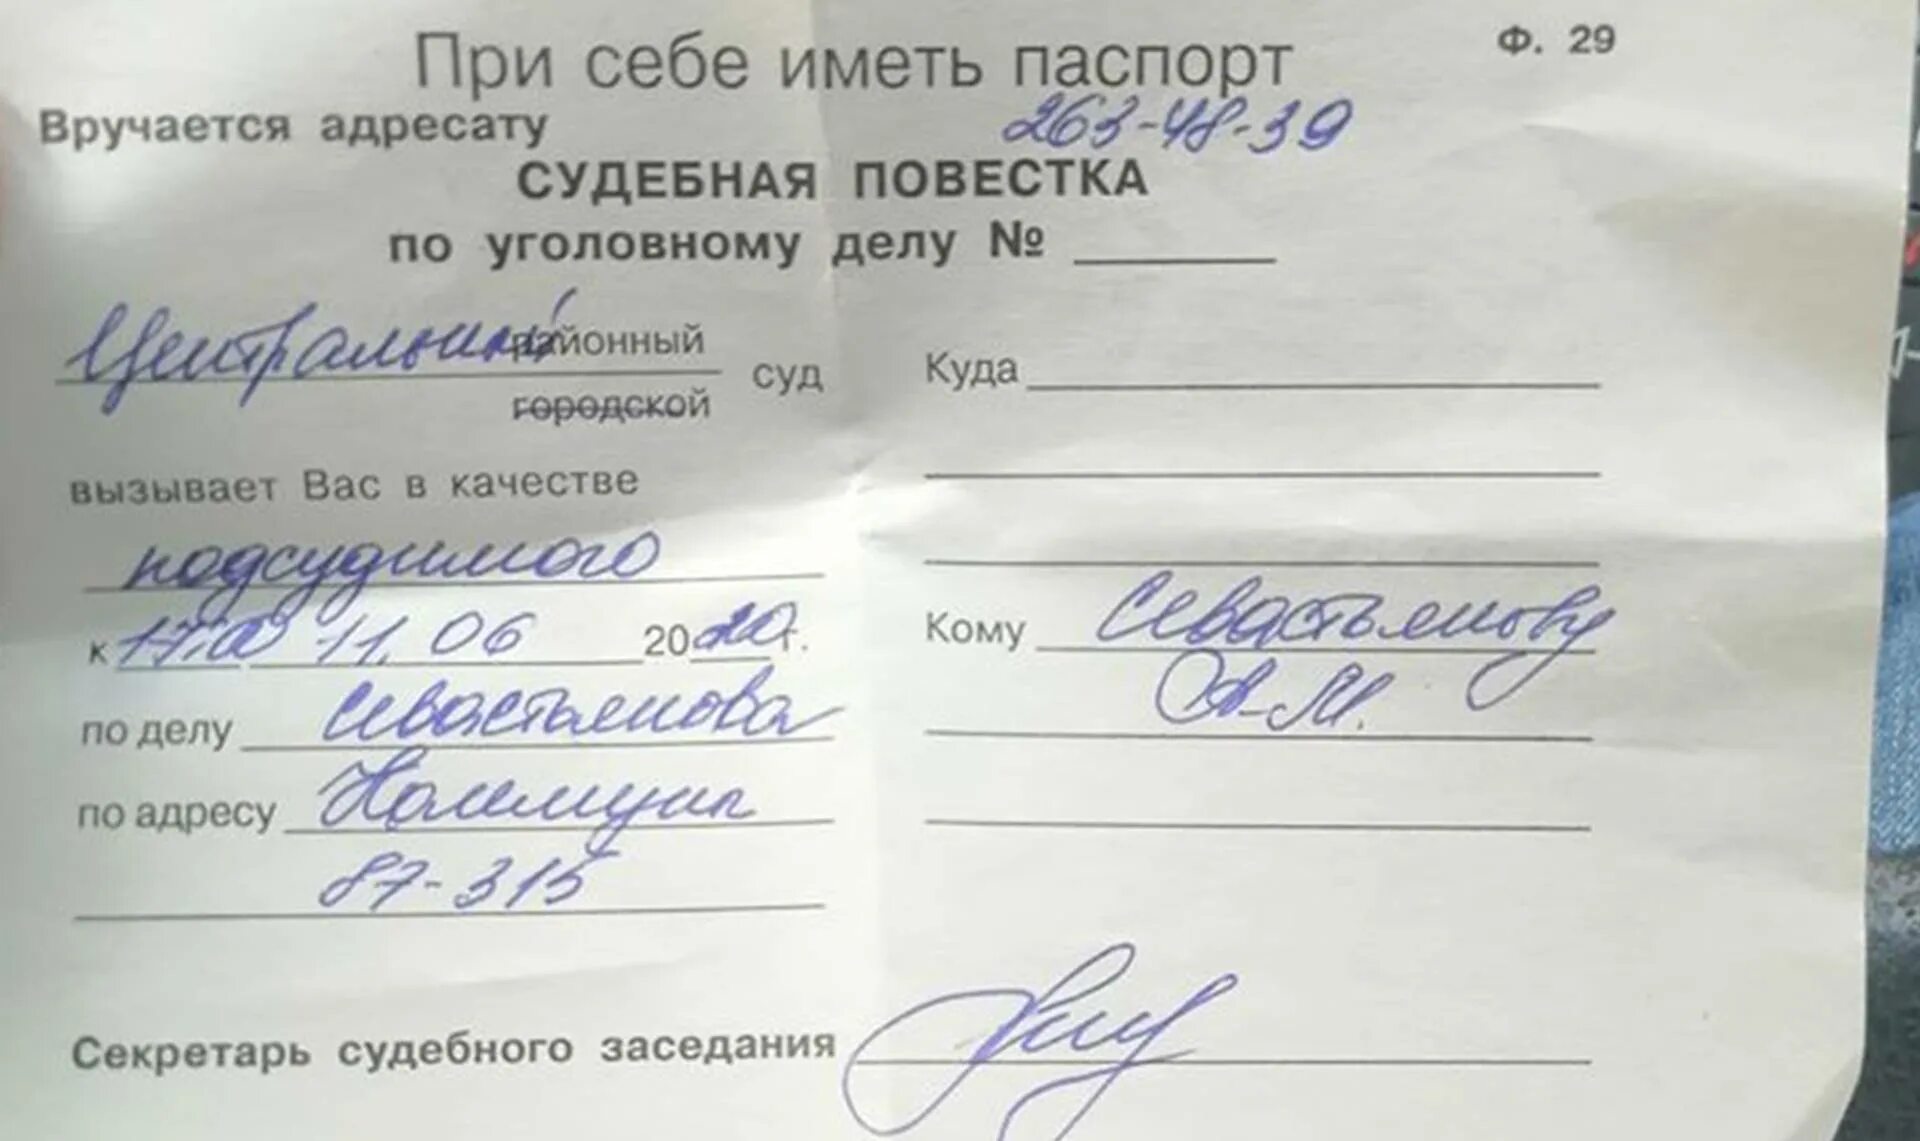 При себе иметь паспорт
Ф. 29
Вручается адресату
263-48-39
СУДЕБНАЯ ПОВЕСТКА
по уголовному делу №
Центральный районный
городской
суд
вызывает Вас в качестве
подсудимого
к 17:00 11.06 2020 г.
по делу Севастьянова
по адресу Коммун
87-315
Куда
Кому Севастьянову
А.М.
Секретарь судебного заседания